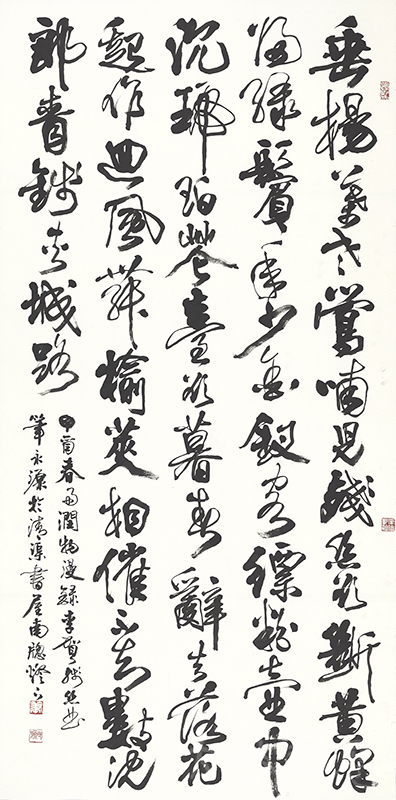 垂楊葉老鶯哺兒殘絲欲斷黃蜂
歸綠鬢年少金釵客縹粉壺中
沉琥珀花臺欲暮春辭去落花
起作迴風舞榆莢相催不知數沈
郎青錢夾城路
春雨潤物漫錄李賀殘絲曲
永源於清渠書屋南窗燈下